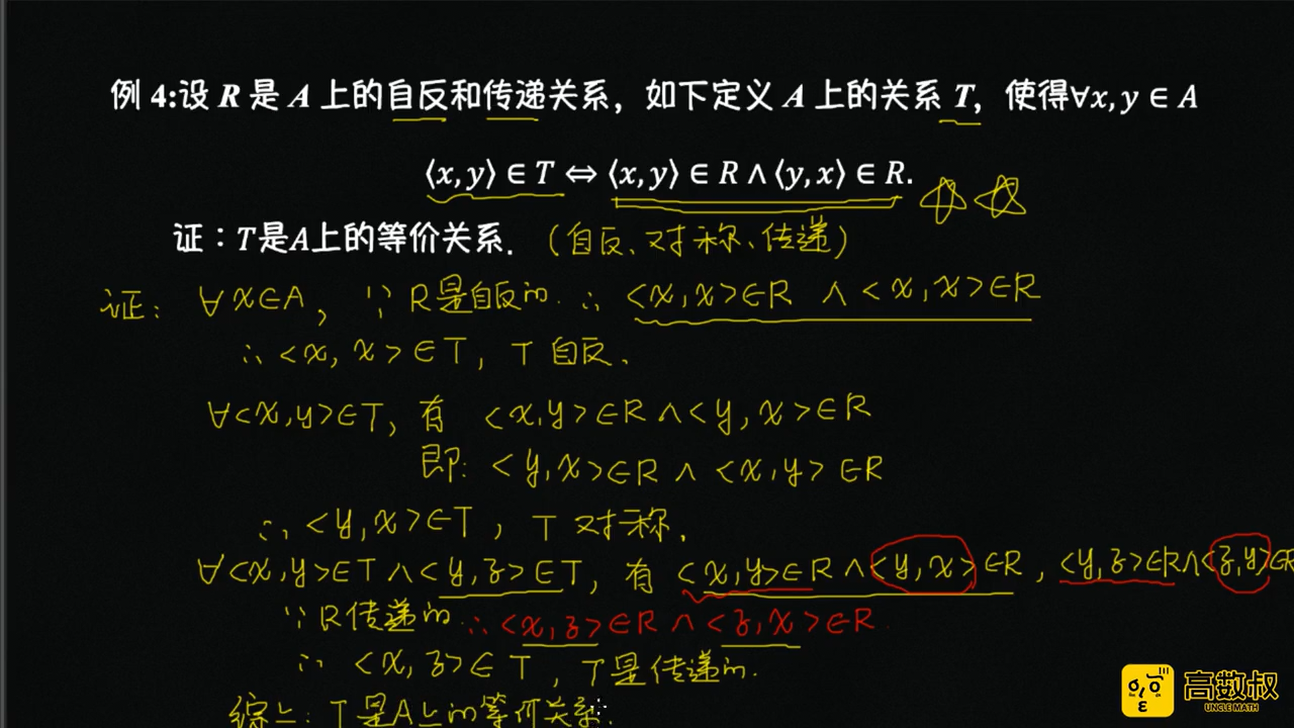 例 4:设 R 是 A 上的自反和传递关系，如下定义 A 上的关系 T，使得∀x, y ∈ A
⟨x, y⟩ ∈ T ⇔ ⟨x, y⟩ ∈ R ∧ ⟨y, x⟩ ∈ R.
证：T是A上的等价关系.（自反、对称、传递）
证: ∀x∈A, ∵ R是自反的. ∴ <x,x>∈R ∧ <x,x>∈R
∴ <x, x>∈T, T 自反.
∀<x,y>∈T, 有 <x,y>∈R ∧ <y, x>∈R
即: <y,x>∈R ∧ <x,y> ∈R
∴ <y,x>∈T, T 对称.
∀<x,y>∈T ∧ <y,z>∈T, 有 <x,y>∈R ∧ <y,x>∈R, <y,z>∈R∧<z,y>∈R
∵ R传递的. ∴ <x,z>∈R ∧ <z,x>∈R.
∴ <x,z>∈T, T是传递的.
综上: T是A上的等价关系.
高数叔
UNCLE MATH